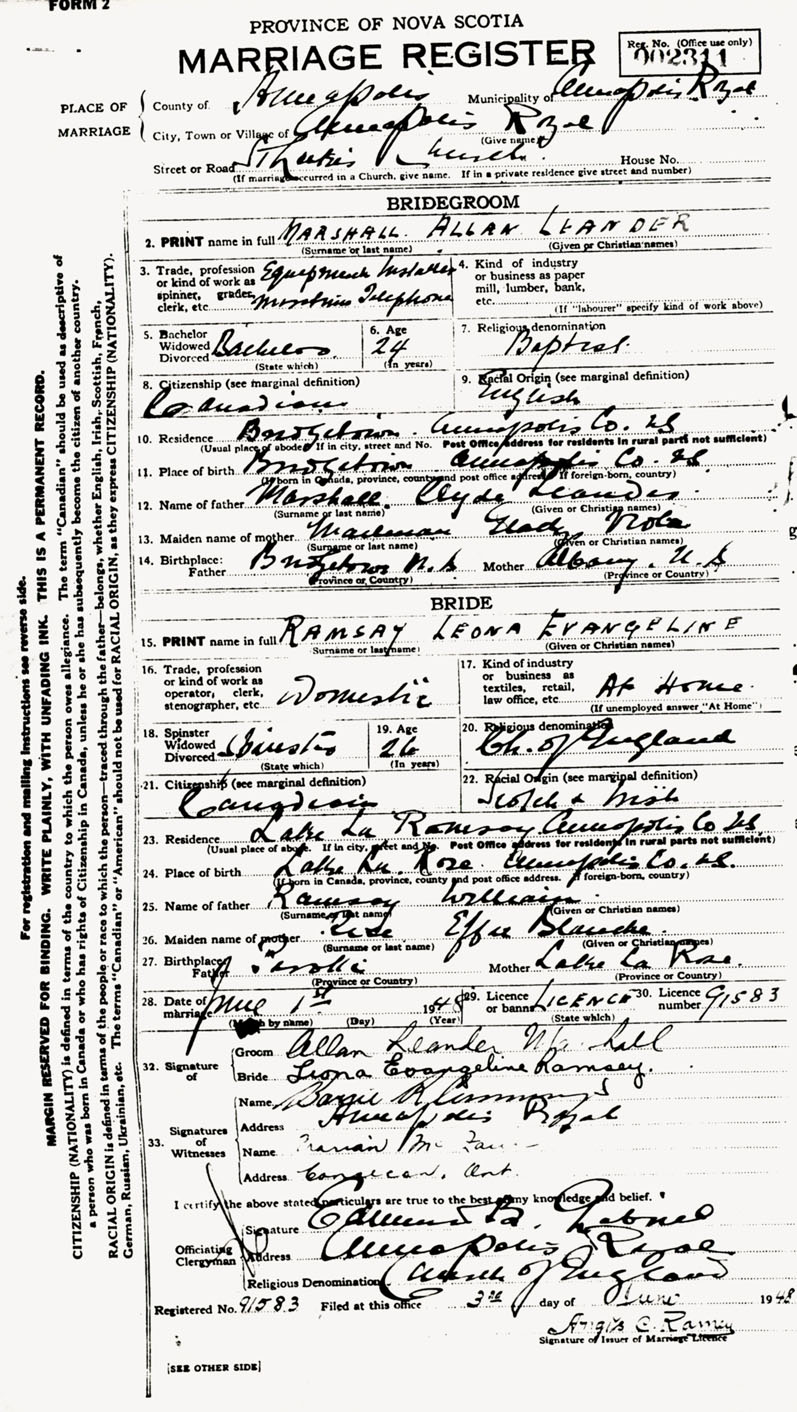 FORM 2
PROVINCE OF NOVA SCOTIA
MARRIAGE REGISTER
Reg. No. (Office use only)
002311
PLACE OF MARRIAGE
County of Annapolis Municipality of Annapolis Royal
City, Town or Village of Annapolis Royal
(Give name)
Street or Road St Lukes Church House No.
(If marriage occurred in a Church, give name. If in a private residence give street and number)
BRIDEGROOM
2. PRINT name in full MARSHALL ALLAN LEANDER
(Surname or last name) (Given or Christian names)
3. Trade, profession or kind of work as spinner, grader, clerk, etc. Equipment Installer Maritime Telephone
4. Kind of industry or business as paper mill, lumber, bank, etc.
(If "labourer" specify kind of work above)
5. Bachelor Widowed Divorced Bachelor
(State which)
6. Age 24
(In years)
7. Religious denomination
Baptist
8. Citizenship (see marginal definition)
Canadian
9. Racial Origin (see marginal definition)
English
10. Residence Bridgetown Annapolis Co. NS
(Usual place of abode. If in city, street and No. Post Office address for residents in rural parts not sufficient)
11. Place of birth Bridgetown Annapolis Co. NS
(If born in Canada, province, county and post office address. If foreign-born, country)
12. Name of father Marshall Clyde Leander
(Surname or last name) (Given or Christian names)
13. Maiden name of mother Mailman Viola
(Surname or last name) (Given or Christian names)
14. Birthplace: Father Bridgetown N.S Mother Albany, N.S
(Province or Country) (Province or Country)
BRIDE
15. PRINT name in full RAMSAY LEONA EVANGELINE
Surname or last name) (Given or Christian names)
16. Trade, profession or kind of work as operator, clerk, stenographer, etc. Domestic
17. Kind of industry or business as textiles, retail, law office, etc. At Home
(If unemployed answer "At Home")
18. Spinster Widowed Divorced Spinster
(State which)
19. Age 26
(In years)
20. Religious denomination
Ch. of England
21. Citizenship (see marginal definition)
Canadian
22. Racial Origin (see marginal definition)
Scotch & Irish
23. Residence Lake La Ramsay Annapolis Co NS
(Usual place of abode. If in city, street and No. Post Office address for residents in rural parts not sufficient)
24. Place of birth Lake La Rose Annapolis Co. NS.
(If born in Canada, province, county and post office address. If foreign-born, country)
25. Name of father Ramsay William
(Surname or last name) (Given or Christian names)
26. Maiden name of mother Effie Blanche
(Surname or last name) (Given or Christian names)
27. Birthplace: Father Mother Lake La Rose.
(Province or Country) (Province or Country)
28. Date of marriage June 1st 1948
(Month by name) (Day) (Year)
29. Licence or banns LICENCE
(State which)
30. Licence number 91583
32. Signature of
Groom Allan Leander Marshall
Bride Leona Evangeline Ramsey.
33. Signatures of Witnesses
Name
Address Annapolis Royal
Name Marian
Address Ont.
I certify the above stated particulars are true to the best of my knowledge and belief.
Officiating Clergyman
Signature
Address Annapolis Royal
Religious Denomination Church of England
Registered No. 91583 Filed at this office 3rd day of June 1948
Angus C. Ramey
Signature of Issuer of Marriage Licence
[SEE OTHER SIDE]
For registration and mailing instructions see reverse side.
MARGIN RESERVED FOR BINDING. WRITE PLAINLY, WITH UNFADING INK. THIS IS A PERMANENT RECORD.
CITIZENSHIP (NATIONALITY) is defined in terms of the country to which the person owes allegiance. The term "Canadian" should be used as descriptive of
a person who was born in Canada or who has rights of Citizenship in Canada, unless he or she has subsequently become the citizen of another country.
RACIAL ORIGIN is defined in terms of the people or race to which the person—traced through the father—belongs, whether English, Irish, Scottish, French,
German, Russian, Ukrainian, etc. The terms "Canadian" or "American" should not be used for RACIAL ORIGIN, as they express CITIZENSHIP (NATIONALITY).